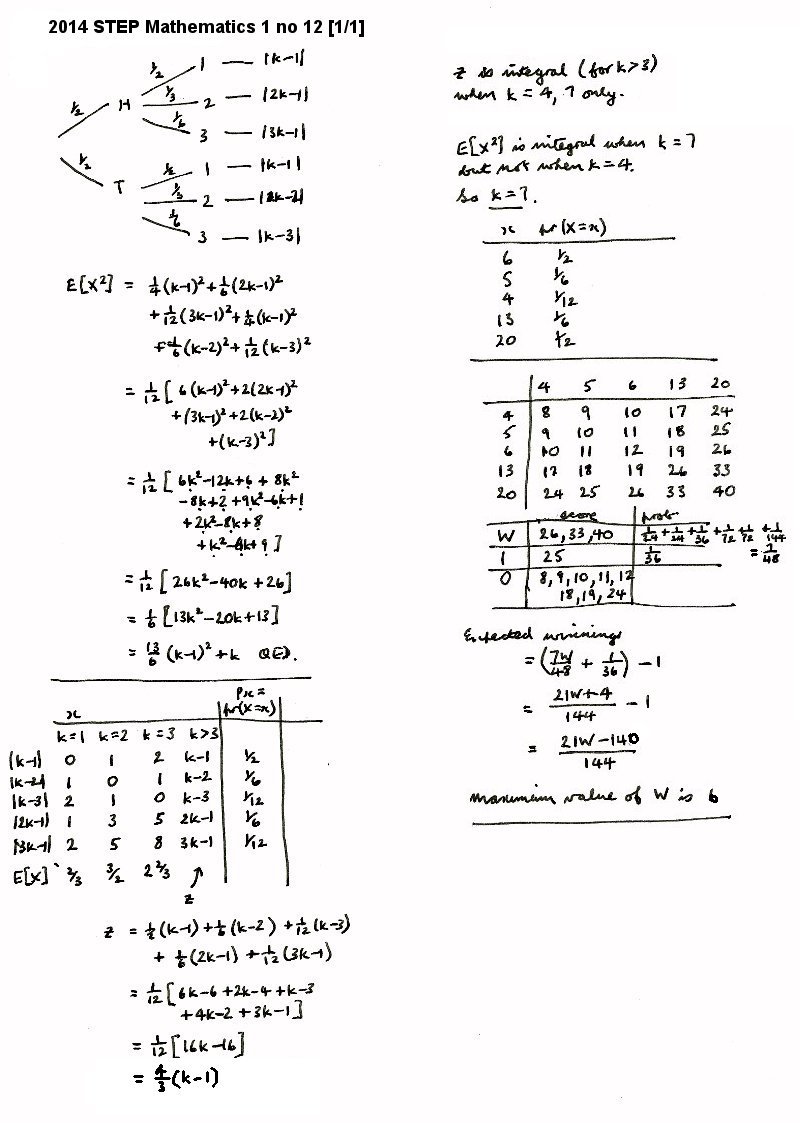 2014 STEP Mathematics 1 no 12 [1/1]
½ H ½ 1 — |k-1|
⅓ 2 — |2k-1|
⅙ 3 — |3k-1|
½ T ½ 1 — |k-1|
⅓ 2 — |k-2|
⅙ 3 — |k-3|
E[X²] = ¼(k-1)²+⅙(2k-1)²
+1/12(3k-1)²+¼(k-1)²
+⅙(k-2)²+1/12(k-3)²
= 1/12[6(k-1)²+2(2k-1)²
+(3k-1)²+2(k-2)²
+(k-3)²]
= 1/12[6k²-12k+6 + 8k²
-8k+2+9k²-6k+1
+2k²-8k+8
+k²-6k+9]
= 1/12[26k²-40k+26]
= ⅙[13k²-20k+13]
= 13/6(k-1)²+k QED.
x Px=
k=1 k=2 k=3 k>3 pr(X=x)
|k-1| 0 1 2 k-1 ½
|k-2| 1 0 1 k-2 ⅙
|k-3| 2 1 0 k-3 1/12
|2k-1| 1 3 5 2k-1 ⅙
|3k-1| 2 5 8 3k-1 1/12
E[X] ⅔ 3/2 2⅔ ↑
z
z = ½(k-1)+⅙(k-2)+1/12(k-3)
+ ⅙(2k-1)+1/12(3k-1)
= 1/12[6k-6+2k-4+k-3
+4k-2+3k-1]
= 1/12[16k-16]
= 4/3(k-1)
z is integral (for k>3)
when k=4, 7 only.
E[X²] is integral when k=7
but not when k=4.
So k=7.
x pr(X=x)
6 ½
5 ⅙
4 1/12
13 ⅙
20 1/12
4 5 6 13 20
4 8 9 10 17 24
5 9 10 11 18 25
6 10 11 12 19 26
13 17 18 19 26 33
20 24 25 26 33 40
score prob
W 26,33,40 1/24+1/24+1/36+1/72+1/72+1/144
= 7/48
1 25 1/36
0 8,9,10,11,12
18,19,24
Expected winnings
= (7W/48 + 1/36) - 1
= 21W+4/144 - 1
= 21W-140/144
maximum value of W is 6